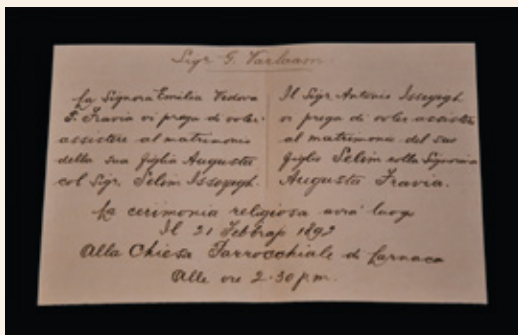 Sigr G. Varlaam.
La Signora Emilia Vedova
T. Fravia vi prega di voler
assistere al matrimonio
della sua figlia Augusta
col Sigr. Selim Issegegh.
Il Sigr Antonio Issegegh
vi prega di voler assistere
al matrimonio del suo
figlio Selim colla Signorina
Augusta Fravia.
La cerimonia religiosa avrà luogo
Il 21 Febbraio 1892
Alla Chiesa Parrocchiale di Larnaca
Alle ore 2.30 p.m.